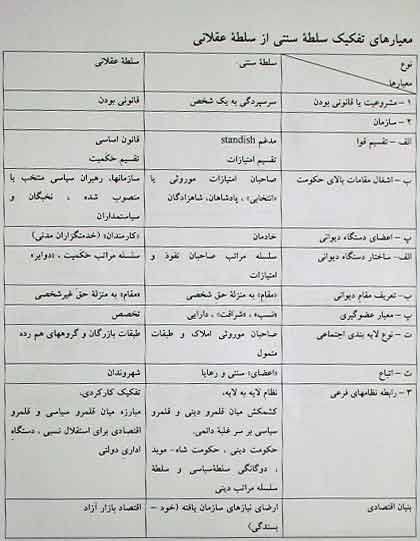 معیارهای تفکیک سلطهٔ سنتی از سلطهٔ عقلانی
نوع سلطهٔ سنتی. سلطهٔ عقلانی
معیارها
۱ – مشروعیت یا قانونی بودن سرسپردگی به یک شخص قانونی بودن
۲ – سازمان
الف – تقسیم قوا مدغم standish قانون اساسی
تقسیم امتیازات تقسیم حکمیت
ب – اشغال مقامات بالای حکومت صاحبان امتیازات موروثی یا سازمانها، رهبران سیاسی منتخب یا
«انتخابی» ، پادشاهان، شاهزادگان منصوب شده ، نخبگان و
سیاستمداران
پ – اعضای دستگاه دیوانی خادمان «کارمندان» (خدمتگزاران مدنی)
الف – ساختار دستگاه دیوانی سلسله مراتب صاحبان نفوذ و سلسله مراتب حکمیت ، «دوایر»
امتیازات
ب – تعریف مقام دیوانی «مقام» به منزلهٔ حق شخصی «مقام» به منزلهٔ حق غیرشخصی
پ – معیار عضوگیری «نسب» ، «شرافت» ، دارایی تخصص
ت – نوع لایه بندی اجتماعی صاحبان موروثی املاک و طبقات طبقات بازرگان و گروههای هم رده
متمول
ث – اتباع «اعضای» سنتی و رعایا شهروندان
۳ – رابطه نظامهای فرعی نظام لایه به لایه، تفکیک کارکردی،
کشمکش میان قلمرو دینی و قلمرو مبارزه میان قلمرو سیاسی و قلمرو
سیاسی بر سر غلبهٔ دائمی. اقتصادی برای استقلال نسبی ، دستگاه
حکومت دینی ، حکومت شاه – موبد اداری دولتی
، دوگانگی سلطهٔ سیاسی و سلطهٔ
سلسله مراتب دینی
بنیان اقتصادی ارضای نیازهای سازمان یافته (خود – اقتصاد بازار آزاد
بسندگی)